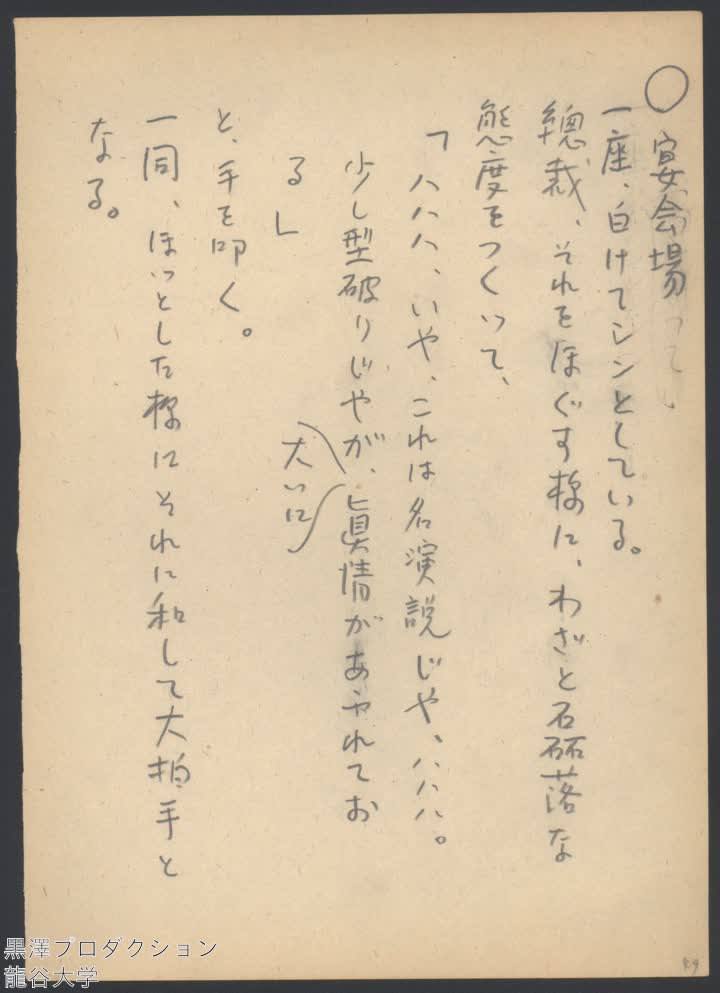 ○宴会場
一座、白けてシンとしている。
總裁、それをほぐす様に、わざと磊落な
態度をつくって、
「ハハハ、いや、これは名演説じゃ、ハハハ。
少し型破りじゃが、大いに眞情があふれてお
る」
と、手を叩く。
一同、ほっとした様にそれに和して大拍手と
なる。
黒澤プロダクション
龍谷大学